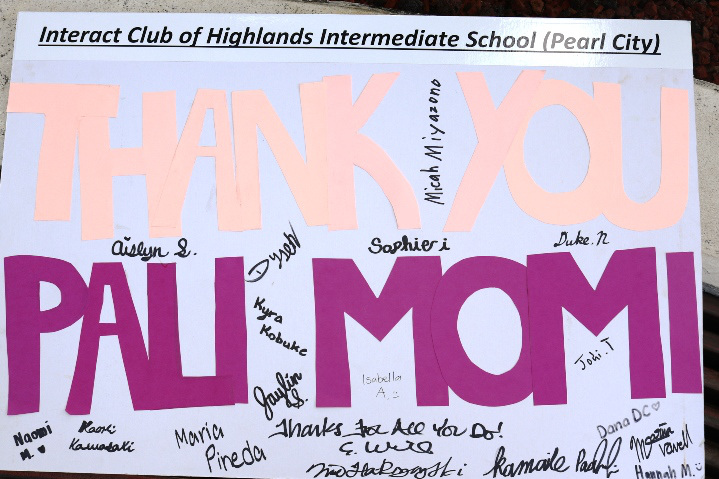 Interact Club of Highlands Intermediate School (Pearl City)
THANK YOU
Micah Miyazono
Aislyn S.
Dyseby
Saphieri
Duke. N
PALI MOMI
Kyra
Kobuke
Jaylin
S.
Isabella
A.
Jodi. T
Naomi
M.
Kaori
Kawasaki
Maria
Pineda
Thanks For All You Do!
Dana DC
Kamaile
Hannah M.